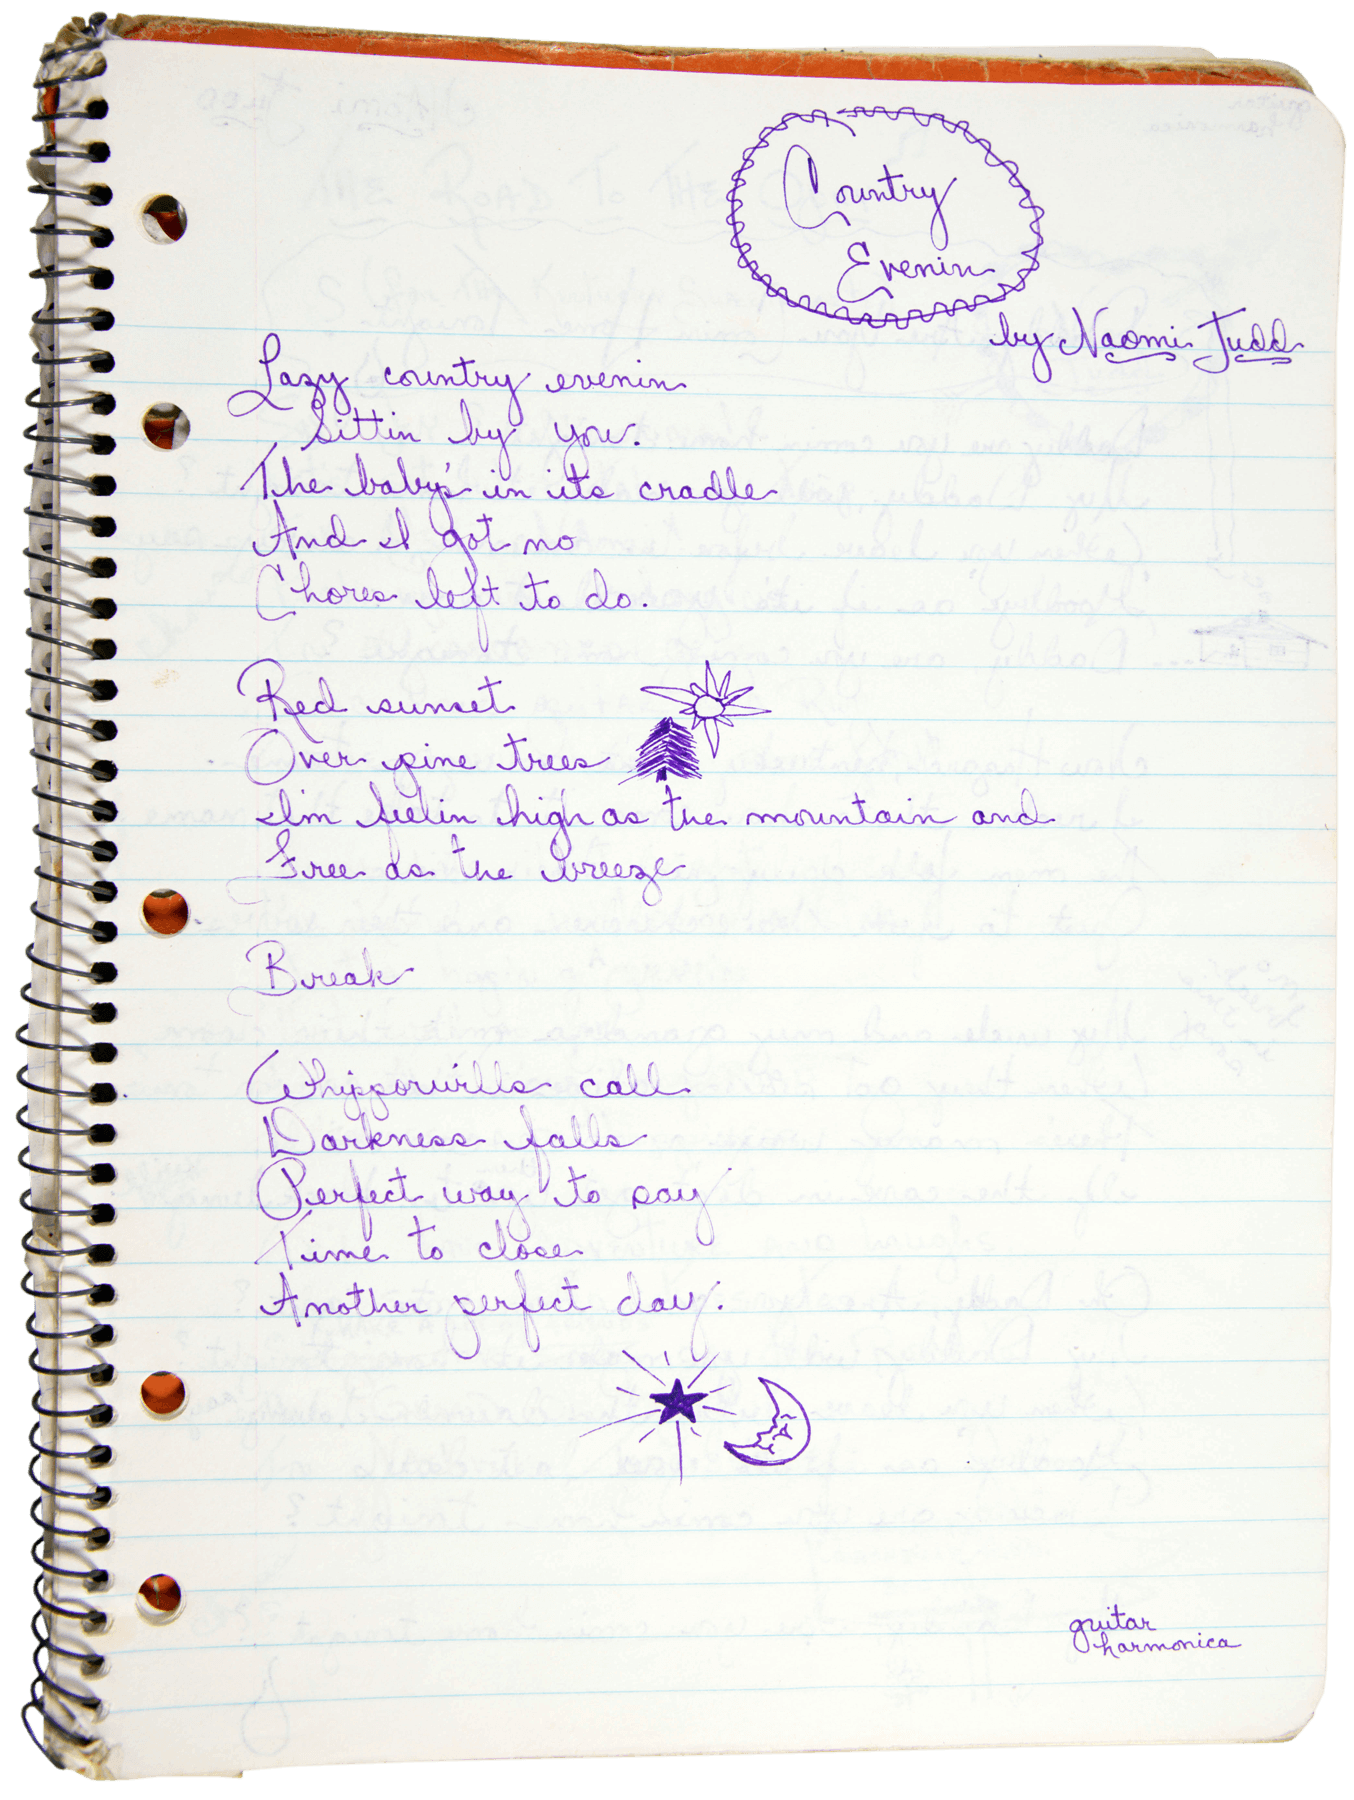 Country
Evenin
by Naomi Judd
Lazy country evenin
Sittin by you.
The baby's in its cradle
And I got no
Chores left to do.
Red sunset
Over pine trees
I'm feelin high as the mountain and
Free as the breeze
Break
Whipporwills call
Darkness falls
Perfect way to say
Time to close
Another perfect day.
guitar
harmonica